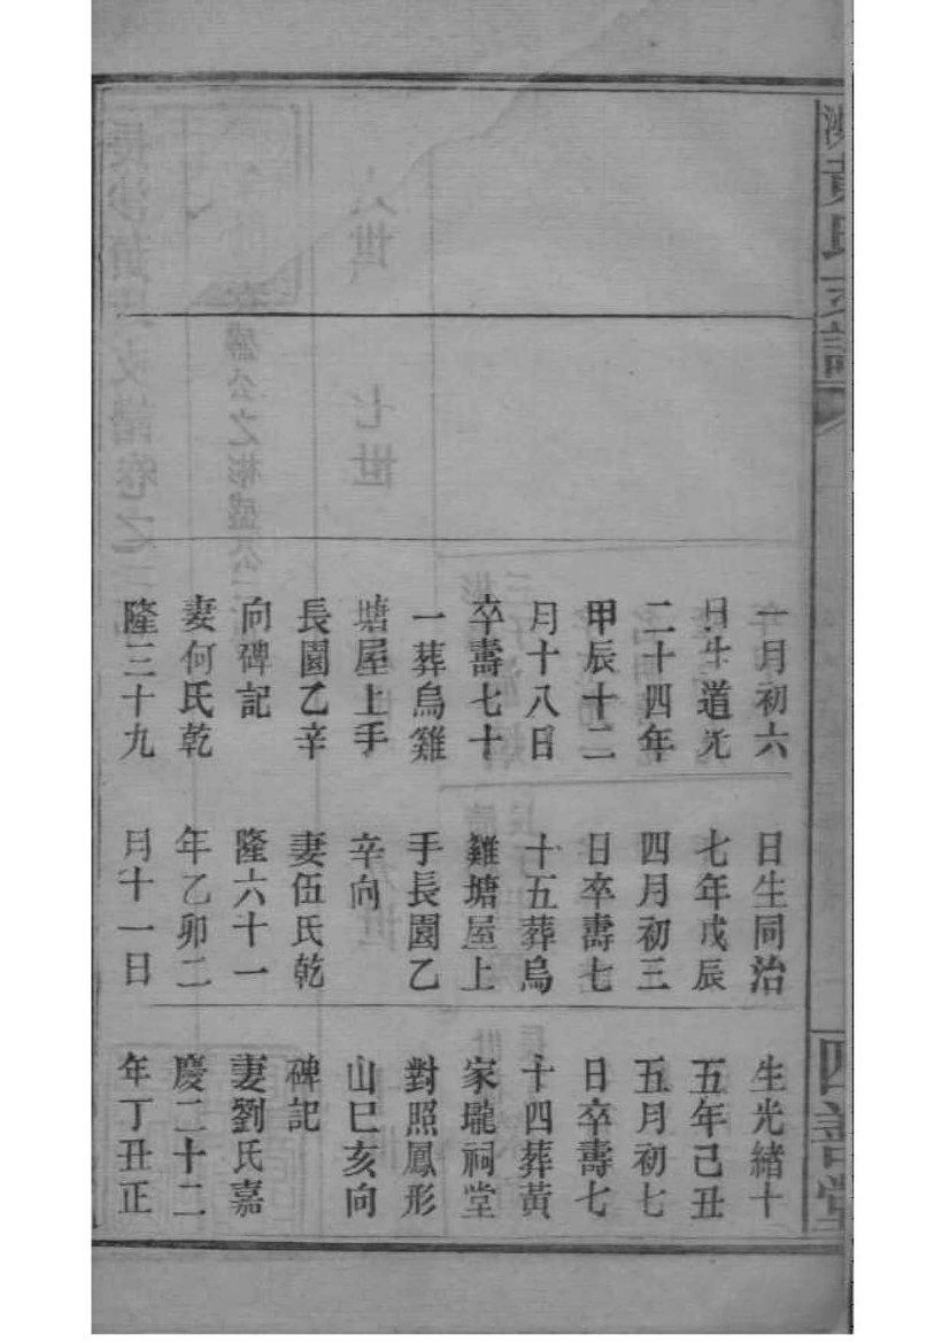 黃氏支譜
四善堂
一月初六
日生道光
二十四年
甲辰十二
月十八日
卒壽七十
一葬烏雞
塘屋上手
長園乙辛
向碑記
妻何氏乾
隆三十九
日生同治
七年戊辰
四月初三
日卒壽七
十五葬烏
雞塘屋上
手長園乙
辛向
妻伍氏乾
隆六十一
年乙卯二
月十一日
生光緒十
五年己丑
五月初七
日卒壽七
十四葬黃
家壠祠堂
對照鳳形
山巳亥向
碑記
妻劉氏嘉
慶二十二
年丁丑正